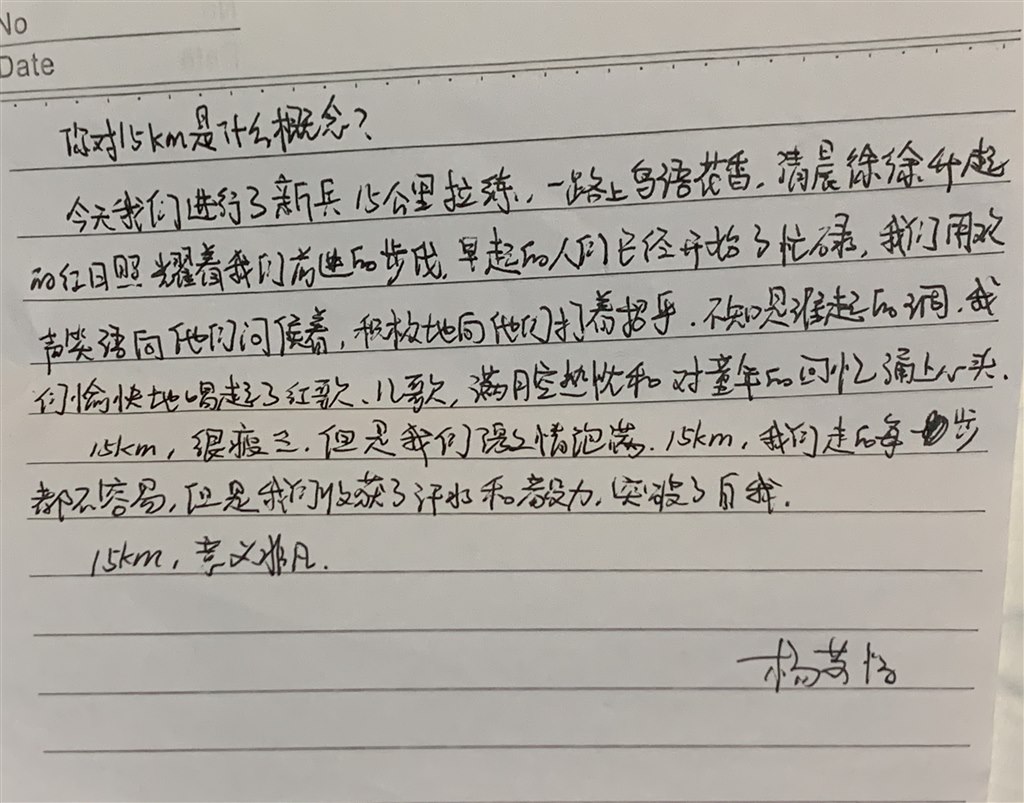 No
Date
你对15km是什么概念？
今天我们进行了新兵15公里拉练，一路上鸟语花香，清晨徐徐升起
的红日照耀着我们前进的步伐，早起的人们已经开始了忙碌，我们用欢
声笑语向他们问候着，积极地向他们打着招乎，不知是谁起的调，我
们愉快地唱起了红歌、儿歌，满月空热忱和对童年的回忆涌上心头。
15km，很疲乏，但是我们激情饱满，15km，我们走的每一步
都不容易，但是我们收获了汗水和毅力，突破了自我。
15km，意义非凡。